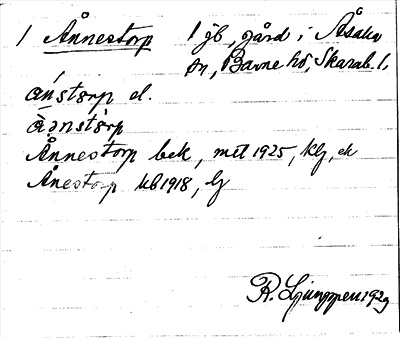 1 Ånnestorp 1 gb, gård i Åsaka
sn, Barne hd, Skarab. l,
aństɵrp el.
Ånnestorp bek, mtl 1925, klj, ek
Ånestorp kb 1918, lj
R. Ljunggren 1929